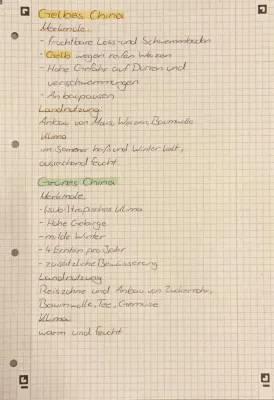 Gelbes China
Merkmale:
- fruchtbare Löss- und Schwemmböden
- Gelb wegen reifen Weizen
- Hohe Gefahr auf Dürren und
Überschwemmungen
- Anbaupausen
Landnutzung:
Anbau von Mais, Weizen, Baumwolle
Klima
im Sommer heiß und Winter kalt,
ausreichend feucht
Grünes China
Merkmale:
- (sub-)tropisches Klima
- Hohe Gebirge
- milde Winter
- 4 Ernten pro Jahr
- zusätzliche Bewässerung
Landnutzung
und Anbau von Zuckerrohr,
Baumwolle, Tee, Gemüse
Klima
warm und feucht